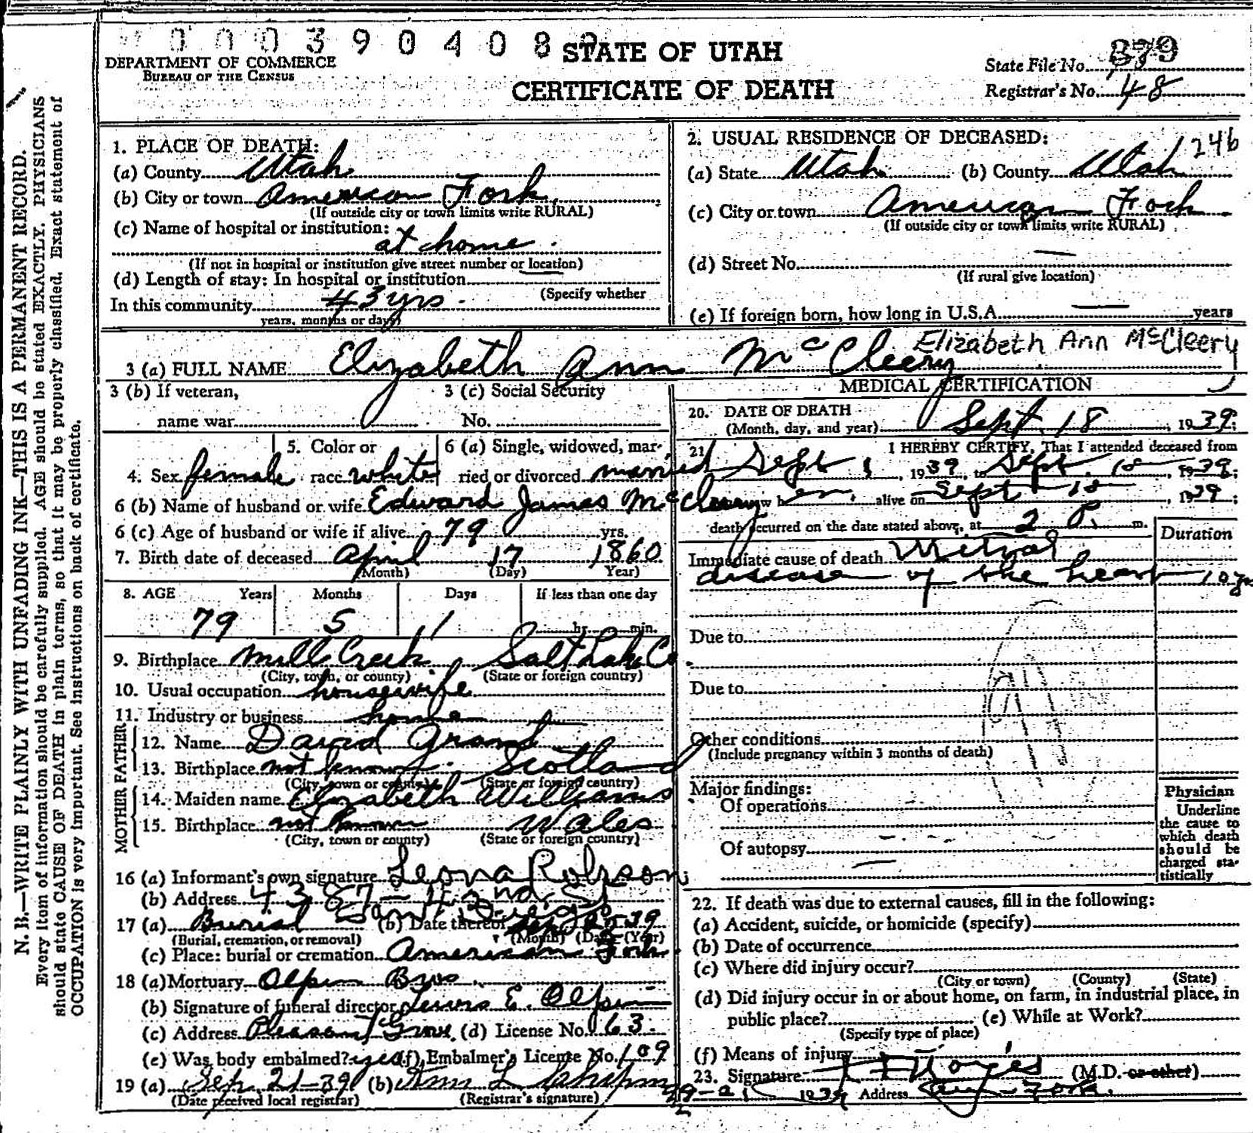 0 0 0 3 9 0 4 0 8
STATE OF UTAH
CERTIFICATE OF DEATH
DEPARTMENT OF COMMERCE
BUREAU OF THE CENSUS
State File No. 879
Registrar's No. 48
N. B.—WRITE PLAINLY WITH UNFADING INK—THIS IS A PERMANENT RECORD.
Every item of information should be carefully supplied. AGE should be stated EXACTLY. PHYSICIANS
should state CAUSE OF DEATH in plain terms, so that it may be properly classified. Exact statement of
OCCUPATION is very important. See instructions on back of certificate.
1. PLACE OF DEATH:
(a) County Utah
(b) City or town American Fork
(If outside city or town limits write RURAL)
(c) Name of hospital or institution:
at home
(If not in hospital or institution give street number or location)
(d) Length of stay: In hospital or institution
(Specify whether
In this community 43 yrs.
years, months or days)
2. USUAL RESIDENCE OF DECEASED: 246
(a) State Utah (b) County Utah
(c) City or town American Fork
(If outside city or town limits write RURAL)
(d) Street No. —
(If rural give location)
(e) If foreign born, how long in U.S.A. — years
3 (a) FULL NAME Elizabeth Ann McCleery Elizabeth Ann McCleery
3 (b) If veteran,
name war
3 (c) Social Security
No.
4. Sex female
5. Color or
race white
6 (a) Single, widowed, mar-
ried or divorced married
6 (b) Name of husband or wife Edward James McCleery
6 (c) Age of husband or wife if alive 79 yrs.
7. Birth date of deceased April 17 1860
(Month) (Day) Year)
8. AGE Years Months Days If less than one day
79 5 1 hr. min.
9. Birthplace Mill Creek Salt Lake Co
(City, town, or county) (State or foreign country)
10. Usual occupation housewife
11. Industry or business home
FATHER
12. Name David Grant
13. Birthplace not known Scotland
(City, town or county) (State or foreign country)
MOTHER
14. Maiden name Elizabeth Williams
15. Birthplace not known Wales
(City, town or county) (State or foreign country)
16 (a) Informant's own signature Leona Robson
(b) Address 4387 - 42nd St
San Diego
17 (a) Burial (b) Date thereof 39
(Burial, cremation, or removal) (Month) (Day) (Year)
(c) Place: burial or cremation American Fork
18 (a) Mortuary Olpin Bros
(b) Signature of funeral director Lewis E. Olpin
(c) Address Pleasant Grove (d) License No. 63
(e) Was body embalmed? yes (f) Embalmer's License No. 109
19 (a) Sep. 21-39 (b)
(Date received local registrar) (Registrar's signature)
MEDICAL CERTIFICATION
20. DATE OF DEATH
(Month, day, and year) Sept. 18, 1939;
21. I HEREBY CERTIFY, That I attended deceased from
Sept 1, 1939, to Sept. 18, 1939;
w her alive on Sept 18, 1939;
death occurred on the date stated above, at 2 P. m.
Duration
Immediate cause of death Mitral
disease of the heart 10 yr
Due to
Due to
Other conditions
(Include pregnancy within 3 months of death)
Major findings:
Of operations
Of autopsy —
Physician
Underline
the cause to
which death
should be
charged sta-
tistically
22. If death was due to external causes, fill in the following:
(a) Accident, suicide, or homicide (specify)
(b) Date of occurrence
(c) Where did injury occur?
(City or town) (County) (State)
(d) Did injury occur in or about home, on farm, in industrial place, in
public place? (e) While at Work?
(Specify type of place)
(f) Means of injury
23. Signature Noyes (M.D. or other)
1939 Address Am. Fork.